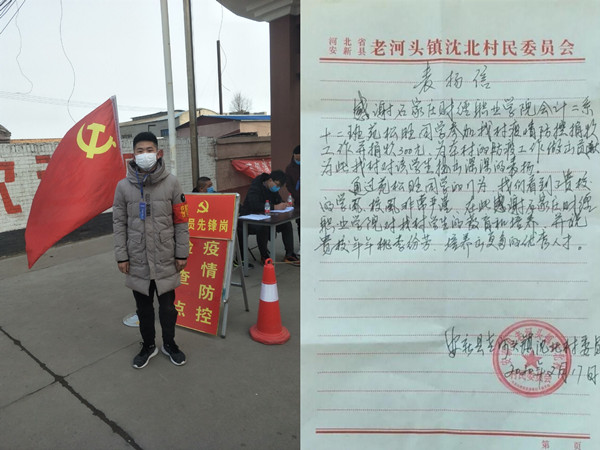 员先锋岗
疫情防控
检查点
河北省
安新县
老河头镇沈北村民委员会
表扬信
感谢石家庄财经职业学院会计系
十二班苑松胜同学参加我村疫情防控执勤
工作并捐款300元，为本村的防疫工作做出贡献
为此我村对该学生提出深深的表扬。
通过苑松胜同学的行为，我们看到了贵校
的学风、校风非常严谨，在此感谢石家庄财经
职业学院对我村学生的教育和培养，并祝
贵校年年桃李芬芳、培养出更多的优秀人才。
安新县老河头镇沈北村委会
2020年2月17日
第 页